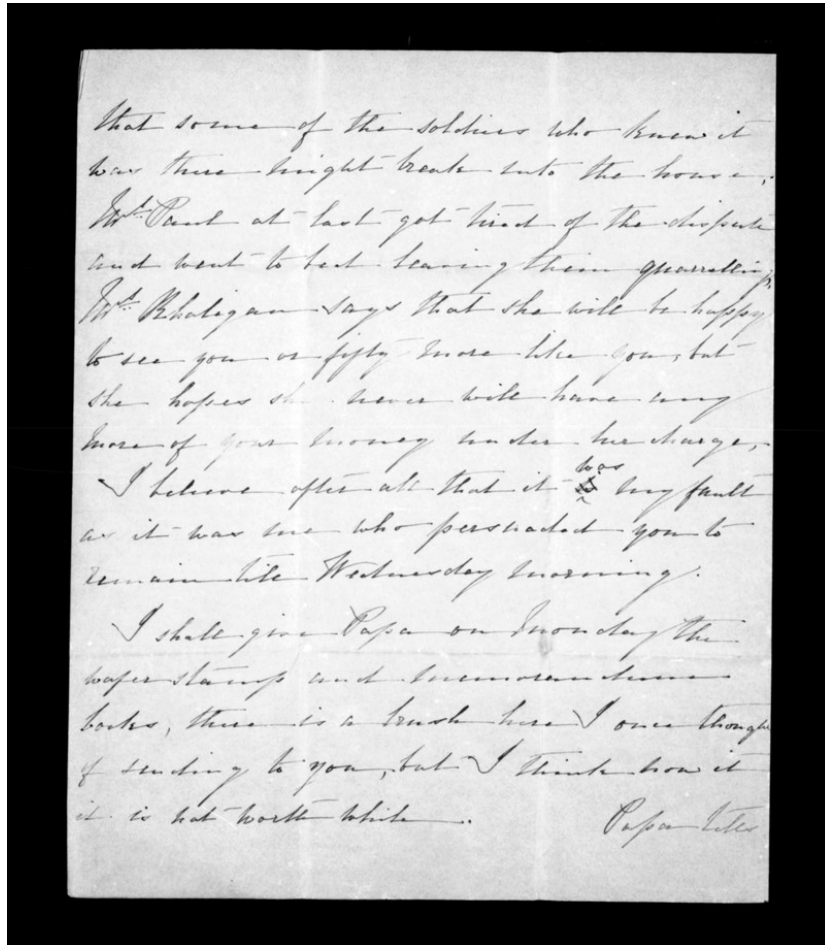 that some of the soldiers who knew it
was there might break into the house,
Mrs. Paul at last got tired of the dispute
and went to bed leaving them quarrelling,
Mrs. Rhaligan says that she will be happy
to see you or fifty more like you, but
she hopes she never will have any
more of your money under her charge,
I believe after all that it was my fault
as it was me who persuaded you to
remain till Wednesday morning.
I shall give Papa on Monday the
wafer stamp and memorandum
books, there is a brush here I once thought
of sending to you, but I think now it
it is not worth while.
Papa tells